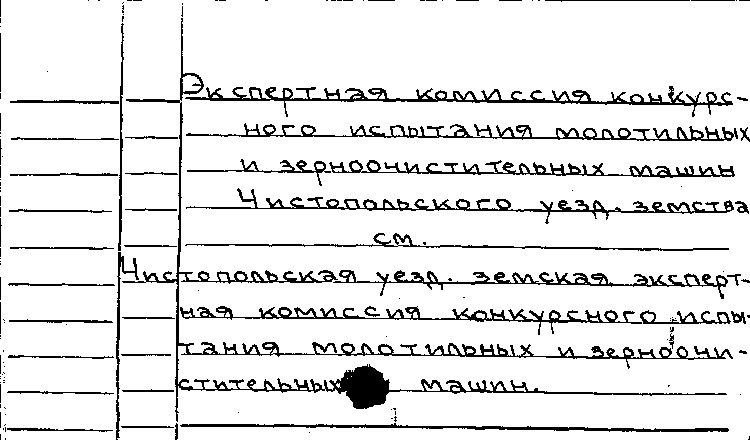 Экспертная комиссия конкурс-
ного испытания молотильных
и зерноочистительных машин
Чистопольского уезд. земства
см.
Чистопольская уезд. земская эксперт-
ная комиссия конкурсного испы-
тания молотильных и зерноочи-
стительных машин.